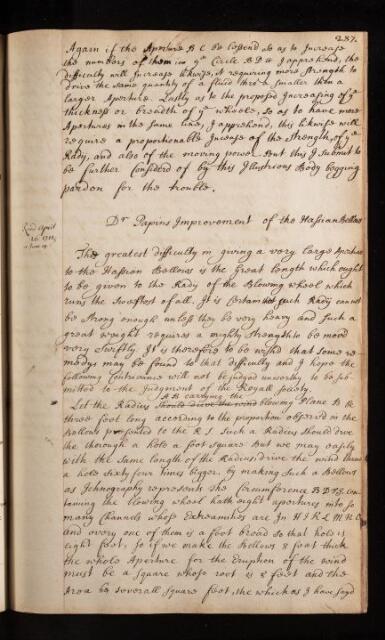 287.
Again if the Aperture B C be lessend so as to Increase
the numbers of them in yᵉ Circle B D & I apprehend, the
difficulty will Increase likewise, it requiring more Strength to
drive the same quantity of a fluid thro' a smaller then a
larger Aperture. Lastly as to the proposed Increasing of yᵉ
thickness or breadth of yᵉ wheele, so as to have more
Apertures in the same line, I apprehend, this likewise will
require a proportionable Increase of the Strength, of yᵉ
Rady, and also of the moving power. But this I submit to
be further considerd of by this Illustrious Body begging
pardon for the trouble.
Read April
Dʳ Papins Improvement of the Hassian Bellows
The greatest difficulty in giving a very large Aperture
to the Hassian Bellows is the Great length which ought
to be given to the Rady of the Blowing wheel which
runs the Swiftest of all. It is Certain that such Rady cannot
be strong enough unless they be very heavy and such a
great weight requires a mighty strength to be movd
very swiftly. It is therefore to be wishd that some re=
medys may be found to that difficulty and I hope the
following Contrivance will not be judged unworthy to be sub=
mitted to the judgment of the Royall society.
Let the Radius A B carrying the blowing Plane B &
three foot long according to the proportion observd in the
Bellows presented to the R S. Such a Radius should drive
the thorough a hole a foot square but we may easily
with the same length of the Radius drive the wind thro
a hole sixty four times bigger, by making such a Bellows
as Ichnography represents the Circumference B D
taining the blowing wheel hath eight apertures into so
many Channels whose Extreamities are In H I K L M N
and every one of them is a foot broad so that hole is
eight foot, so if we make the Bellows 8 foot thick
the whole Aperture for the Eruption of the wind
must be a square whose root is 8 feet and the
Area 64 severall square feet, the which as I have sayd